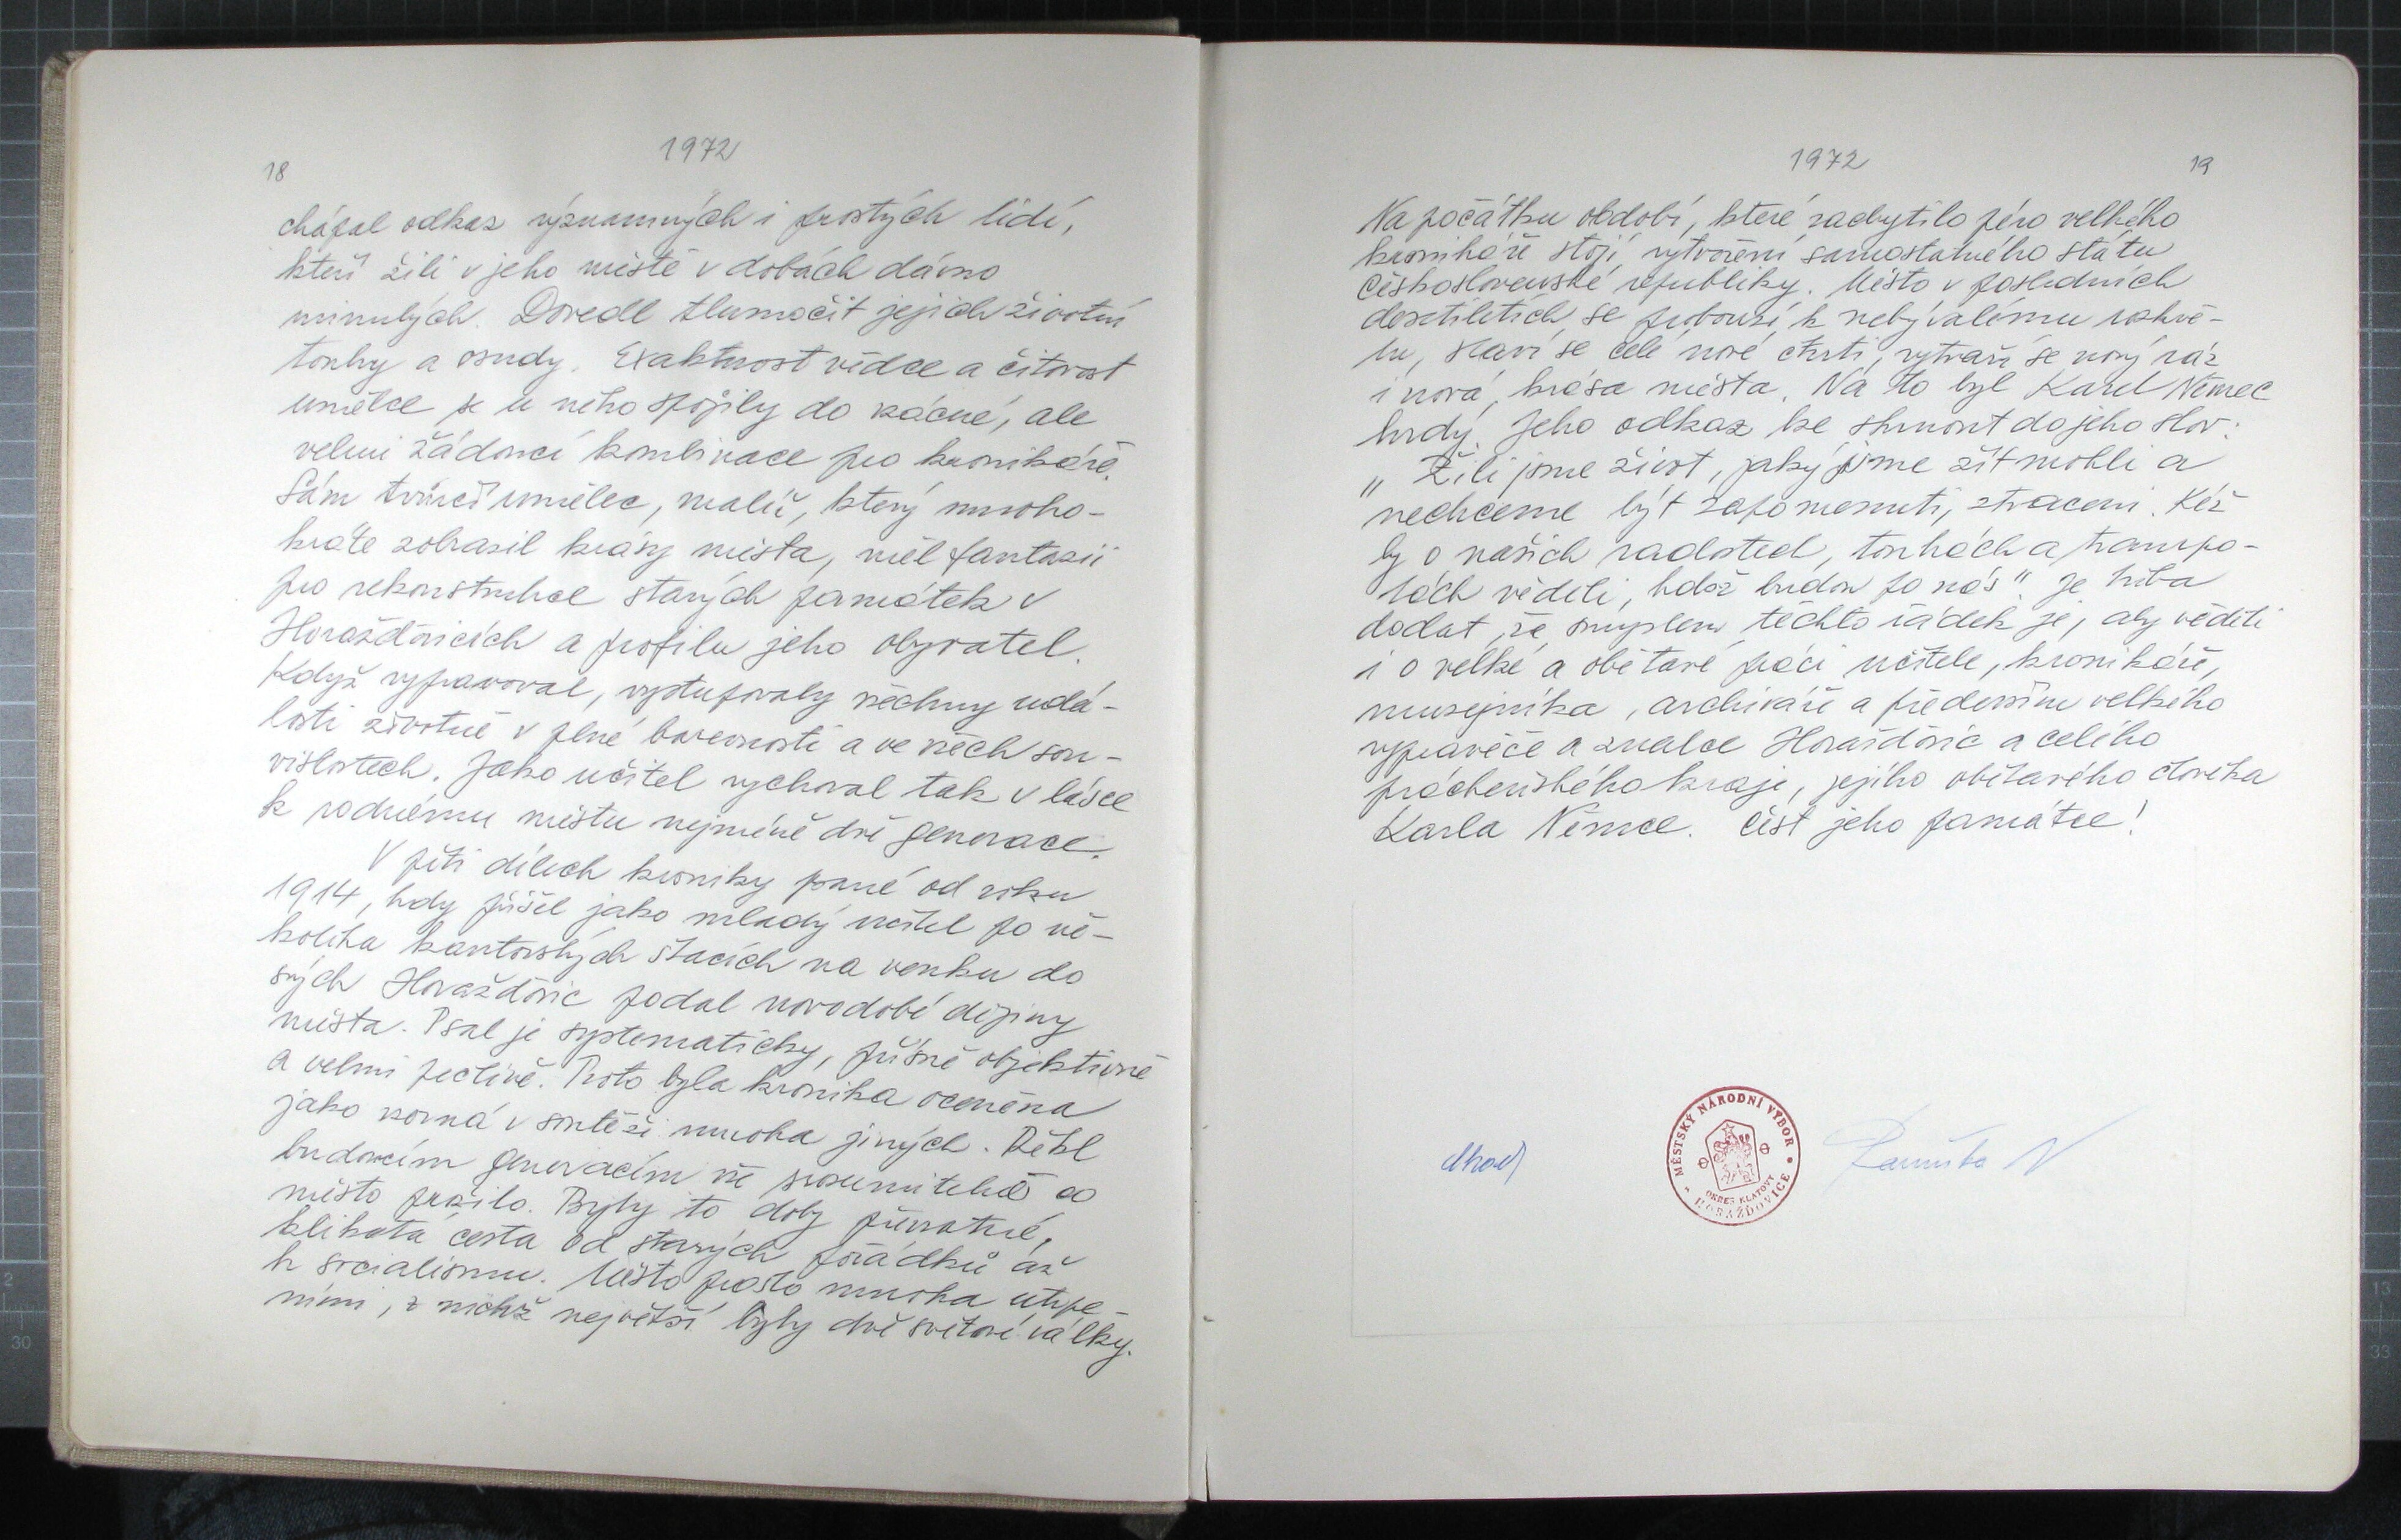 1972
18
chápal odkaz významných i prostých lidí,
kteří žili v jeho městě v dobách dávno
minulých. Dovedl tlumočit jejich životní
touhy a osudy. Exaktnost vědce a citovost
umělce se u něho spojily do vzácné, ale
velmi žádoucí kombinace pro kronikáře.
Sám tvůrčí umělec, malíř, který mnoho-
kráte zobrazil krásy města, měl fantazii
pro rekonstrukce starých památek v
Horažďovicích a profilu jeho obyvatel.
Když vypravoval, vystupovaly všechny udá-
losti životně v plné barevnosti a ve všech sou-
vislostech. Jako učitel vychoval tak v lásce
k rodnému městu nejméně dvě generace.
V pěti dílech kroniky psané od roku
1914, kdy přišel jako mladý učitel po ně-
kolika kantorských štacích na venku do
svých Horažďovic podal novodobé dějiny
města. Psal je systematicky, přísně objektivně
a velmi pečlivě. Proto byla kronika oceněna
jako vzorná v soutěži mnoha jiných. Řekl
budoucím generacím vše srozumitelně co
město prožilo. Byly to doby převratné,
klikatá cesta od starých pořádků až
k socialismu. Město prošlo mnoha utrpe-
ními, z nichž největší byly dvě světové války.
1972
19
Na počátku období, které zachytilo péro velkého
kronikáře stojí vytvoření samostatného státu
Československé republiky. Město v posledních
desetiletích se probouzí k nebývalému rozkvě-
tu, staví se celé nové čtvrti, vytváří se nový ráz
i nová krása města. Na to byl Karel Němec
hrdý. Jeho odkaz lze shrnout do jeho slov:
„Žili jsme život, jaký jsme žít mohli a
nechceme být zapomenuti, ztraceni. Kéž
by o našich radostech, touhách a trampo-
tách věděli, kdož budou po nás". Je třeba
dodat, že smyslem těchto řádek je, aby věděli
i o velké a obětavé práci učitele, kronikáře,
musejníka, archiváře a především velkého
vypravěče a znalce Horažďovic a celého
prácheňského kraje, jejího obětavého člověka
Karla Němce. Čest jeho památce!
MĚSTSKÝ NÁRODNÍ VÝBOR
OKRES KLATOVY
HORAŽĎOVICE